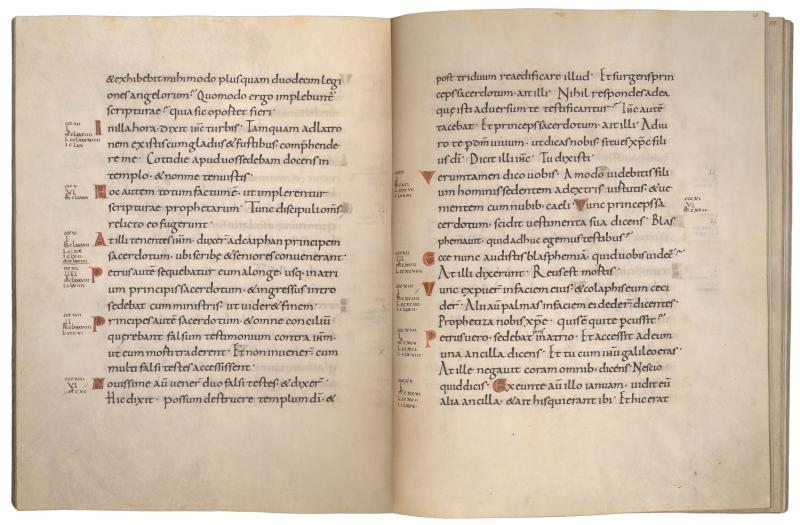 & exhibebit mihi modo plus quam duodecim legi
ones angelorum Quomodo ergo implebunt̄
scripturae quia sic oportet fieri
In illa hora dixit ih̄c turbis Tamquam ad latro
nem existis cum gladiis & fustibus comp̄hende
re me Cotidie apud uos sedebam docens in
templo & non me tenuistis
Hoc autem totum factum ē ut implerentur
scripturae prophetarum Tunc discipuli om̄s
relicto eo fugerunt
At illi tenentes ih̄m duxer̄ ad caiphan principem
sacerdotum ubi scribe & seniores conuenerant
Petrus aut̄ sequebatur eum a longe usq; in atri
um principis sacerdotum & ingressus intro
sedebat cum ministris ut uider& finem
Principes aut̄ sacerdotum & omne conciliū
querebant falsum testimonium contra ih̄m
ut eum morti traderent Et non inuener̄ cum
multi falsi testes accessissent
Nouissime aū uener̄ duo falsi testes & dixer̄
Hic dixit possum destruere templum dī &
post triduum reaedificare illud Et surgens prin
ceps sacerdotum ait illi Nihil respondes ad ea
que isti aduersum te testificantur Ih̄c aut̄
tacebat Et princeps sacerdotum ait illi Adiu
ro te p̄ dm̄ uiuum ut dicas nobis si tu es xp̄c fili
us dī Dicit illi ih̄c Tu dixisti
Verumtamen dico uobis A modo uidebitis fili
um hominis sedentem a dextris uirtutis & ue
nientem cum nubib; caeli Tunc princeps sa
cerdotum scidit uestimenta sua dicens Blas
phemauit quid adhuc egemus testibus
Ecce nunc audistis blasphemiā quid uobis uidet̄
At illi dixerunt Reus est mortis
Tunc expuer̄ in faciem eius & colaphis eum ceci
der̄ Alii aū palmas in faciem ei deder̄ dicentes
Prophetiza nobis xp̄e quis ē qui te percussit
Petrus uero sedebat foris in atrio Et accessit ad eum
una ancilla dicens Et tu cum ih̄u galileo eras
At ille negauit coram omnib; dicens Nescio
quid dicis Exeunte aū illo ianuam uidit eū
alia ancilla & ait his qui erant ibi Et hic erat